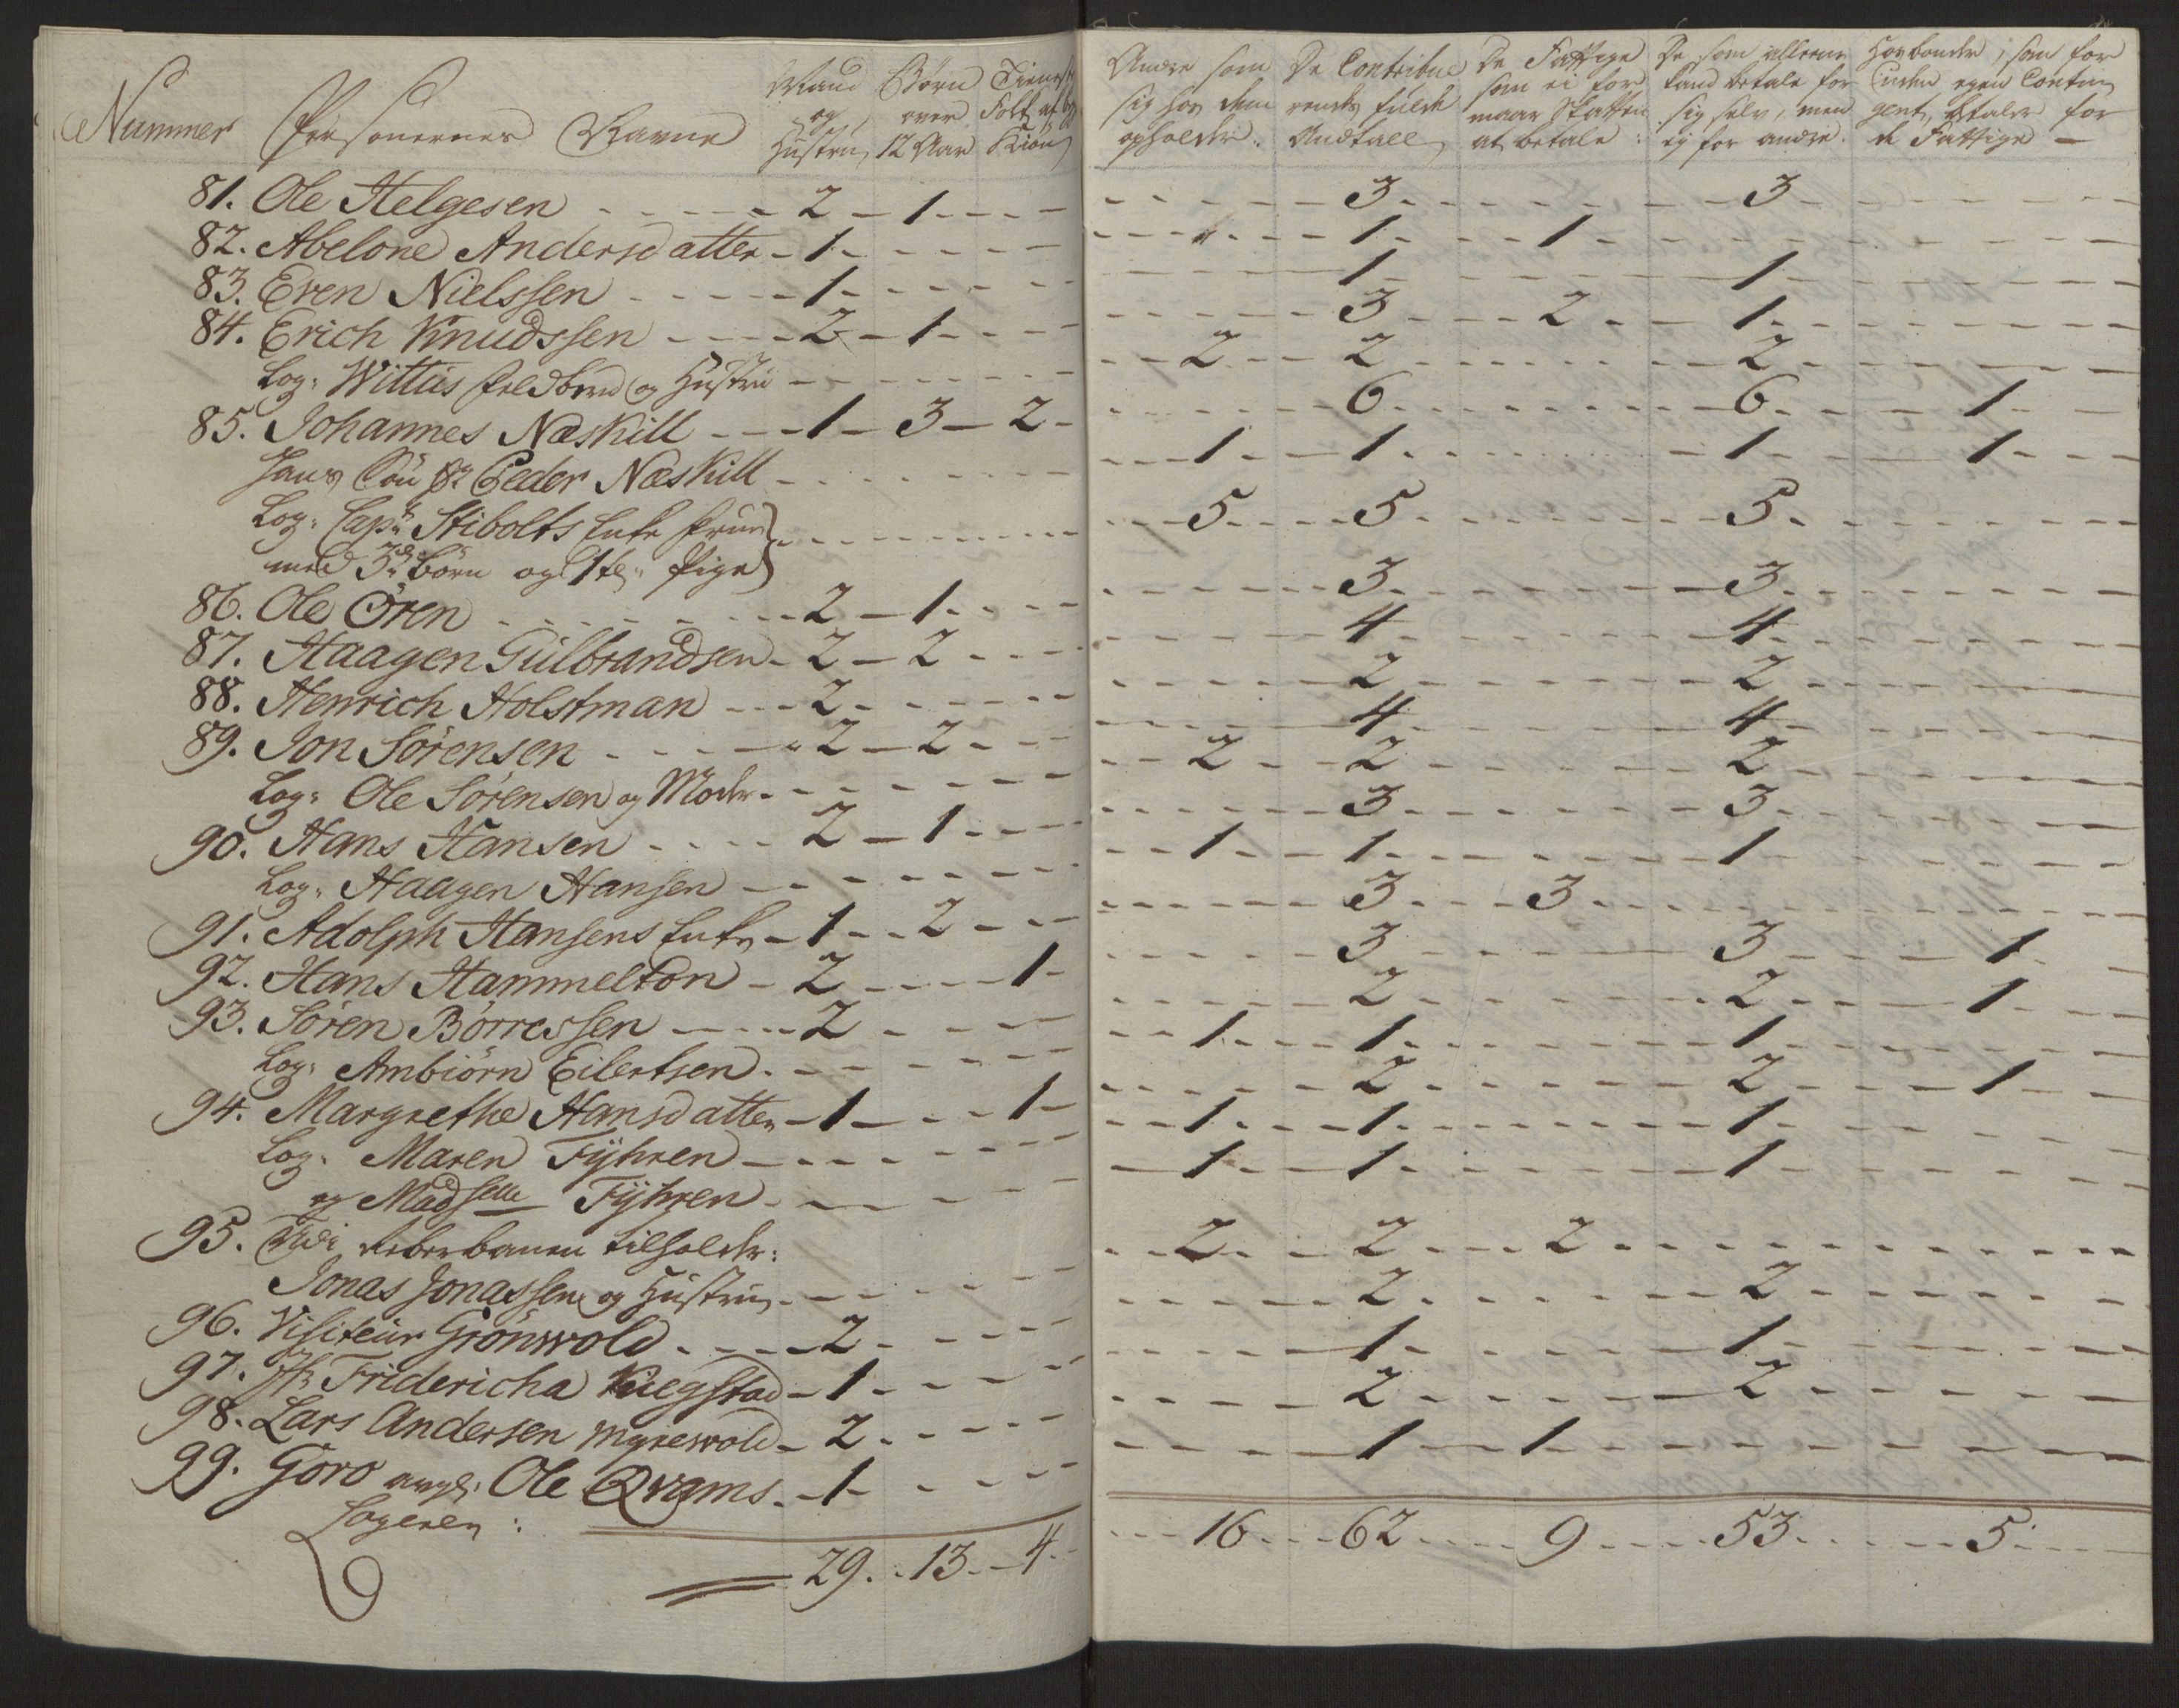 Nummer Personernes Navne Mand og Hustru Børn over 12 Aar Tienest Folk af Kiøn Andre som sig hos dem opholder. De Contribuerendes fulde Andtall De Fattige som ei formaar Skatten at betale: De som alleene kand betale for sig selv, men ej for andre. Hosbonder, som for uden egen Contingent, betaler for de Fattige —
81. Ole Helgesen 2 1 3 3
82. Abelone Andersdatter 1 1 1
83. Even Nielssen 1 1 1
84. Erich Knudssen 2 1 3 2 1
Log: Wittus og Hustru 2 2 2
85. Johannes Næskill 1 3 2 6 6 1
Hans Søn Peder Næskill 1 1 1 1
Log: Capt: Stibolts Enke Frue
med 3de Børn og 1 te Pige 5 5 5
86. Ole Ören 2 1 3 3
87. Haagen Gulbrandsen 2 2 4 4
88. Henrich Holstman 2 2 2
89. Jon Sørensen 2 2 4 4
Log: Ole Sørensen og Moder 2 2 2
90. Hans Hansen 2 1 3 3
Log: Haagen Hansen 1 1 1
91. Adolph Hansens Enke 1 2 3 3
92. Hans Hammelton 2 1 3 3 1
93. Søren Børressen 2 2 2 1
Log: Ambiörn Eilertsen 1 1 1
94. Margrethe Hansdatter 1 1 2 2 1
Log: Maren Fÿhren 1 1 1
og Madselle Fÿhren 1 1 1
95. Ved Reberbanen tilholder:
Jonas Jonassen og Hustru 2 2 2
96. Visiteur Grönwold 2 2 2
97. Jfr Fridericha Kuegstad 1 1 1
98. Lars Andersen Myrewold 2 2 2
99. Goro Ole Qvams 1 1 1
Logerer:
29. 13. 4. 16 62 9 53 5